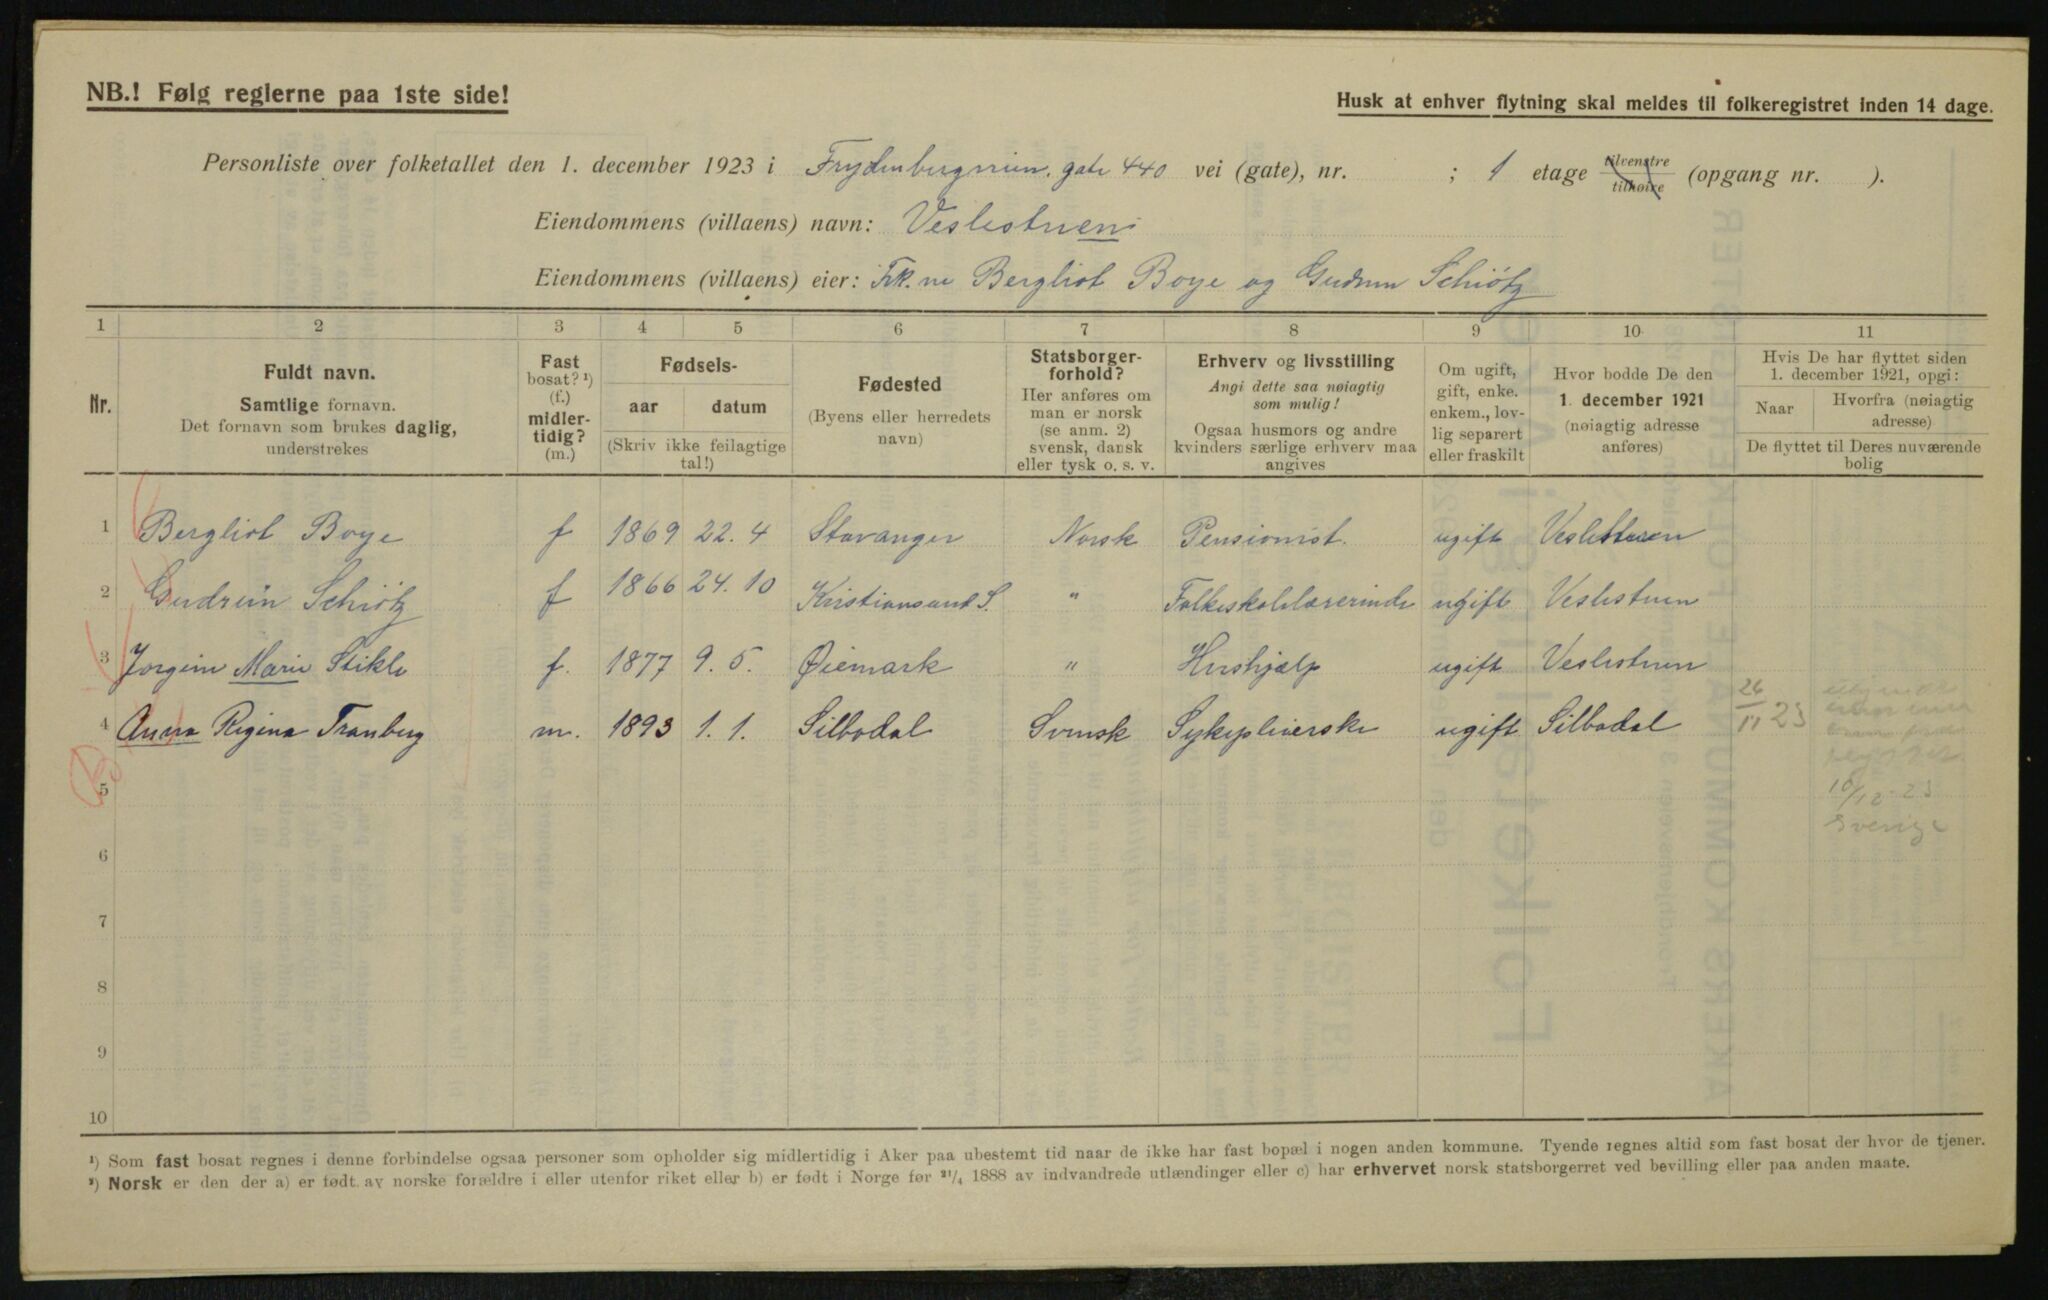 NB.! Følg reglerne paa 1ste side!
Husk at enhver flytning skal meldes til folkeregistret inden 14 dage.
Personliste over folketallet den 1. december 1923 i gate 440 vei (gate), nr. ; 1 etage tilvenstre tilhøire (opgang nr. ).
Eiendommens (villaens) navn: Veslestuen
Eiendommens (villaens) eier: Frk.ne Bergliot Boye og Gudrun Schiötz
1 2 3 4 5 6 7 8 9 10 11
Nr.
Fuldt navn.
Samtlige fornavn.
Det fornavn som brukes daglig,
understrekes
Fast
bosat? ¹)
(f.)
midler-
tidig?
(m.)
Fødsels-
aar datum
(Skriv ikke feilagtige
tal!)
Fødested
(Byens eller herredets
navn)
Statsborger-
forhold?
Her anføres om
man er norsk
(se anm. 2)
svensk, dansk
eller tysk o. s. v.
Erhverv og livsstilling
Angi dette saa nøiagtig
som mulig!
Ogsaa husmors og andre
kvinders særlige erhverv maa
angives
Om ugift,
gift, enke.
enkem., lov-
lig separert
eller fraskilt
Hvor bodde De den
1. december 1921
(nøiagtig adresse
anføres)
Hvis De har flyttet siden
1. december 1921, opgi:
Naar Hvorfra (nøiagtig
adresse)
De flyttet til Deres nuværende
bolig
1 Bergliot Boye f 1869 22. 4 Stavanger Norsk Pensionist. ugift Veslestuen
2 Gudrun Schiötz f 1866 24. 10 Kristiansand S. " Folkeskolelærerinde ugift Veslestuen
3 Jorgine Marie Stikle f. 1877 9. 5. Øiemark " Hushjælp ugift Veslestuen
4 Anna Regina Tranberg m. 1893 1. 1. Silbodal Svensk Sykepleierske ugift Silbodal 26/11 23
5
10/12 - 23
Sverige
6
7
8
9
10
¹) Som fast bosat regnes i denne forbindelse ogsaa personer som opholder sig midlertidig i Aker paa ubestemt tid naar de ikke har fast bopæl i nogen anden kommune. Tyende regnes altid som fast bosat der hvor de tjener.
²) Norsk er den der a) er født av norske forældre i eller utenfor riket eller b) er født i Norge før ²¹/₄ 1888 av indvandrede utlændinger eller c) har erhvervet norsk statsborgerret ved bevilling eller paa anden maate.